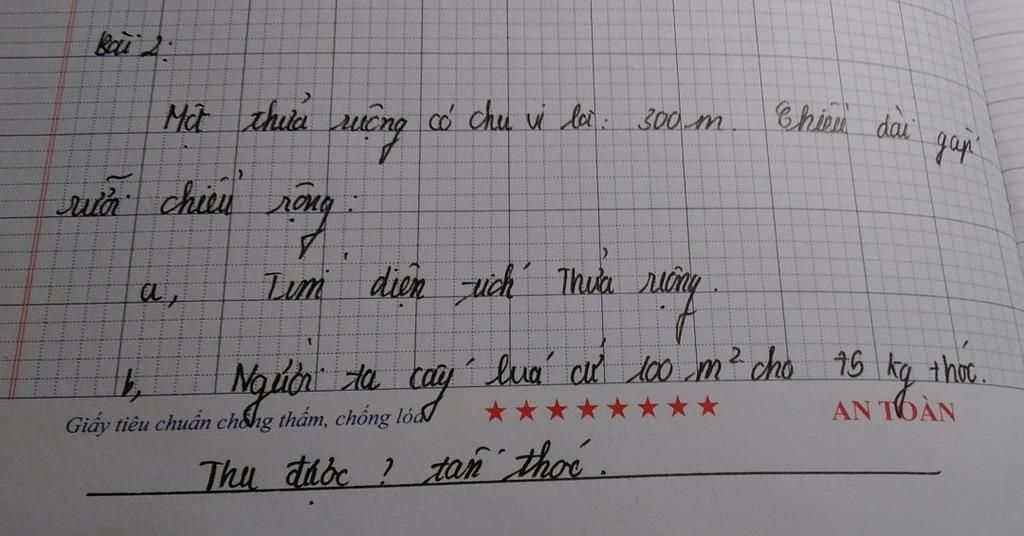 Bài 2:
Một thửa ruộng có chu vi là: 300 m. Chiều dài gấp
rưỡi chiều rộng:
a, Tìm diện tích thửa ruộng.
b, Người ta cấy lúa cứ 100 m² cho 75 kg thóc.
Giấy tiêu chuẩn chống thấm, chống lóa ★★★★★★★★ AN TOÀN
Thu được ? tấn thóc.